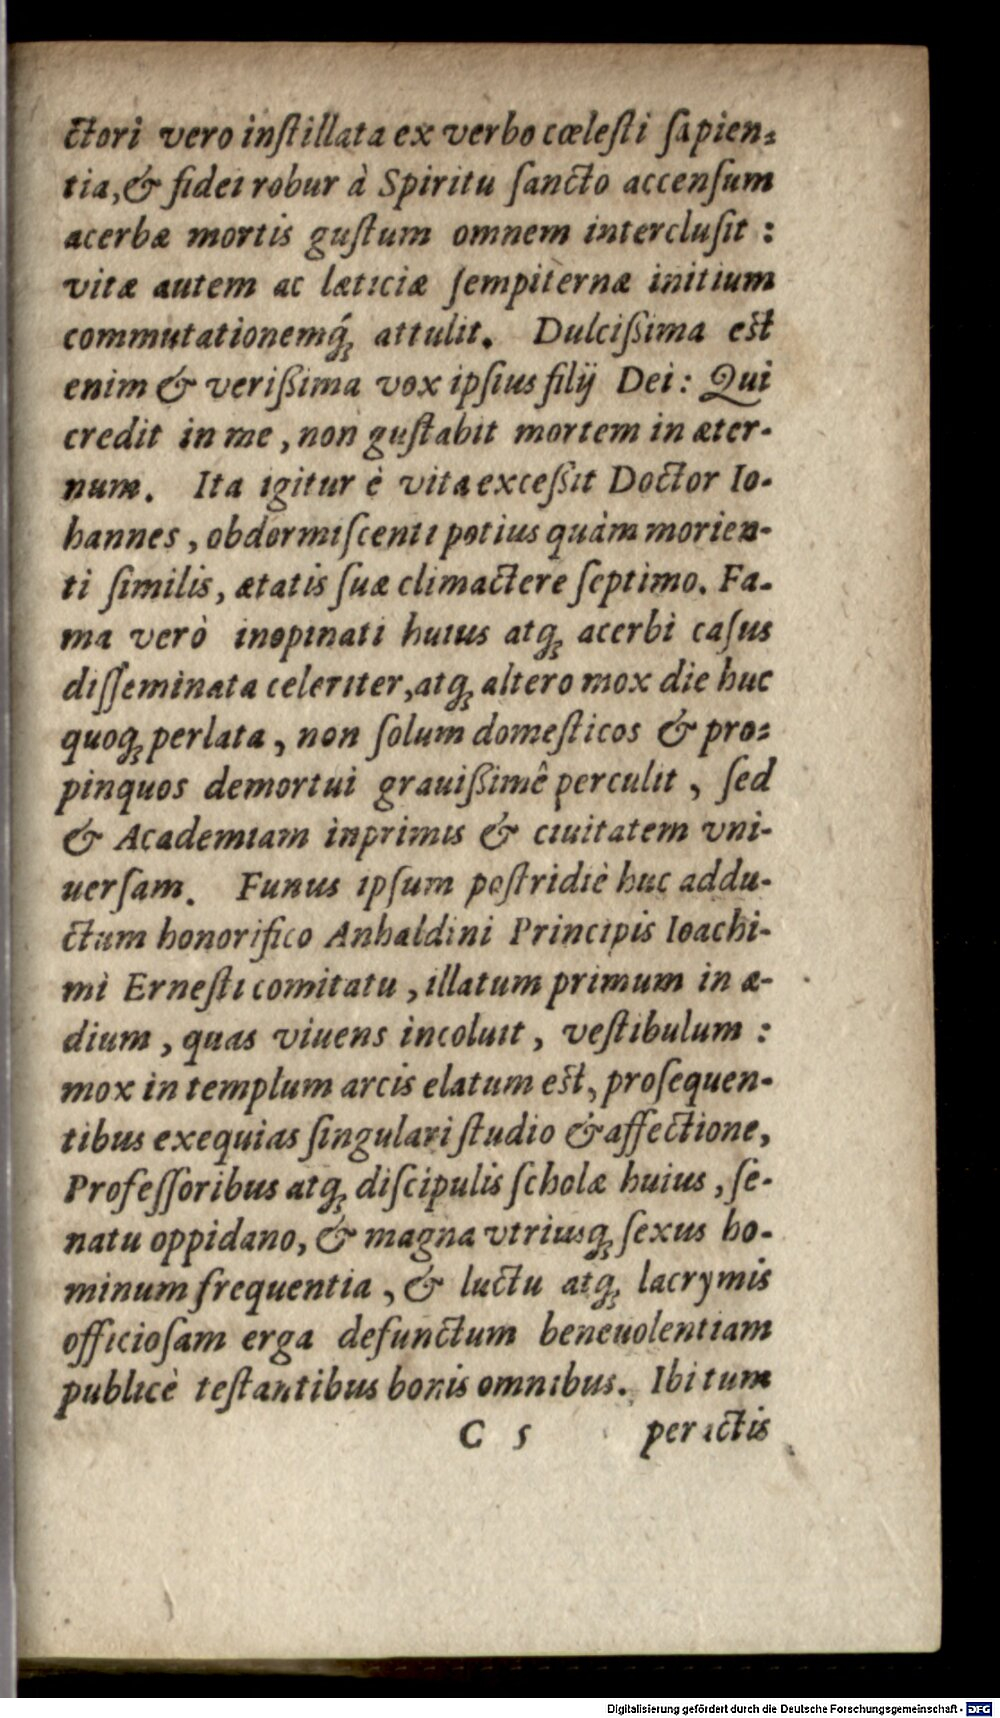 ctori vero inſtillata ex verbo cœleſti ſapien-
tia, & fidei robur à Spiritu ſancto accenſum
acerbæ mortis guſtum omnem intercluſit :
vitæ autem ac læticiæ ſempiternæ initium
commutationemq́; attulit. Dulcißima eſt
enim & verißima vox ipſius filij Dei: Qui
credit in me, non guſtabit mortem in æter-
num. Ita igitur è vita exceßit Doctor Io-
hannes, obdormiſcenti potius quàm morien-
ti ſimilis, ætatis ſuæ climactere ſeptimo. Fa-
ma verò inopinati huius atq; acerbi caſus
diſſeminata celeriter, atq; altero mox die huc
quoq; perlata, non ſolum domeſticos & pro-
pinquos demortui grauißimê perculit, ſed
& Academiam inprimis & ciuitatem vni-
uerſam. Funus ipſum poſtridiè huc addu-
ctum honorifico Anhaldini Principis Ioachi-
mi Erneſti comitatu, illatum primum in æ-
dium, quas viuens incoluit, veſtibulum :
mox in templum arcis elatum eſt, proſequen-
tibus exequias ſingulari ſtudio & affectione,
Profeſſoribus atq; diſcipulis ſcholæ huius, ſe-
natu oppidano, & magna vtriusq; ſexus ho-
minum frequentia, & luctu atq; lacrymis
officioſam erga defunctum beneuolentiam
publicè teſtantibus bonis omnibus. Ibi tum
C 5 peractis
Digitalisierung gefördert durch die Deutsche Forschungsgemeinschaft - DFG